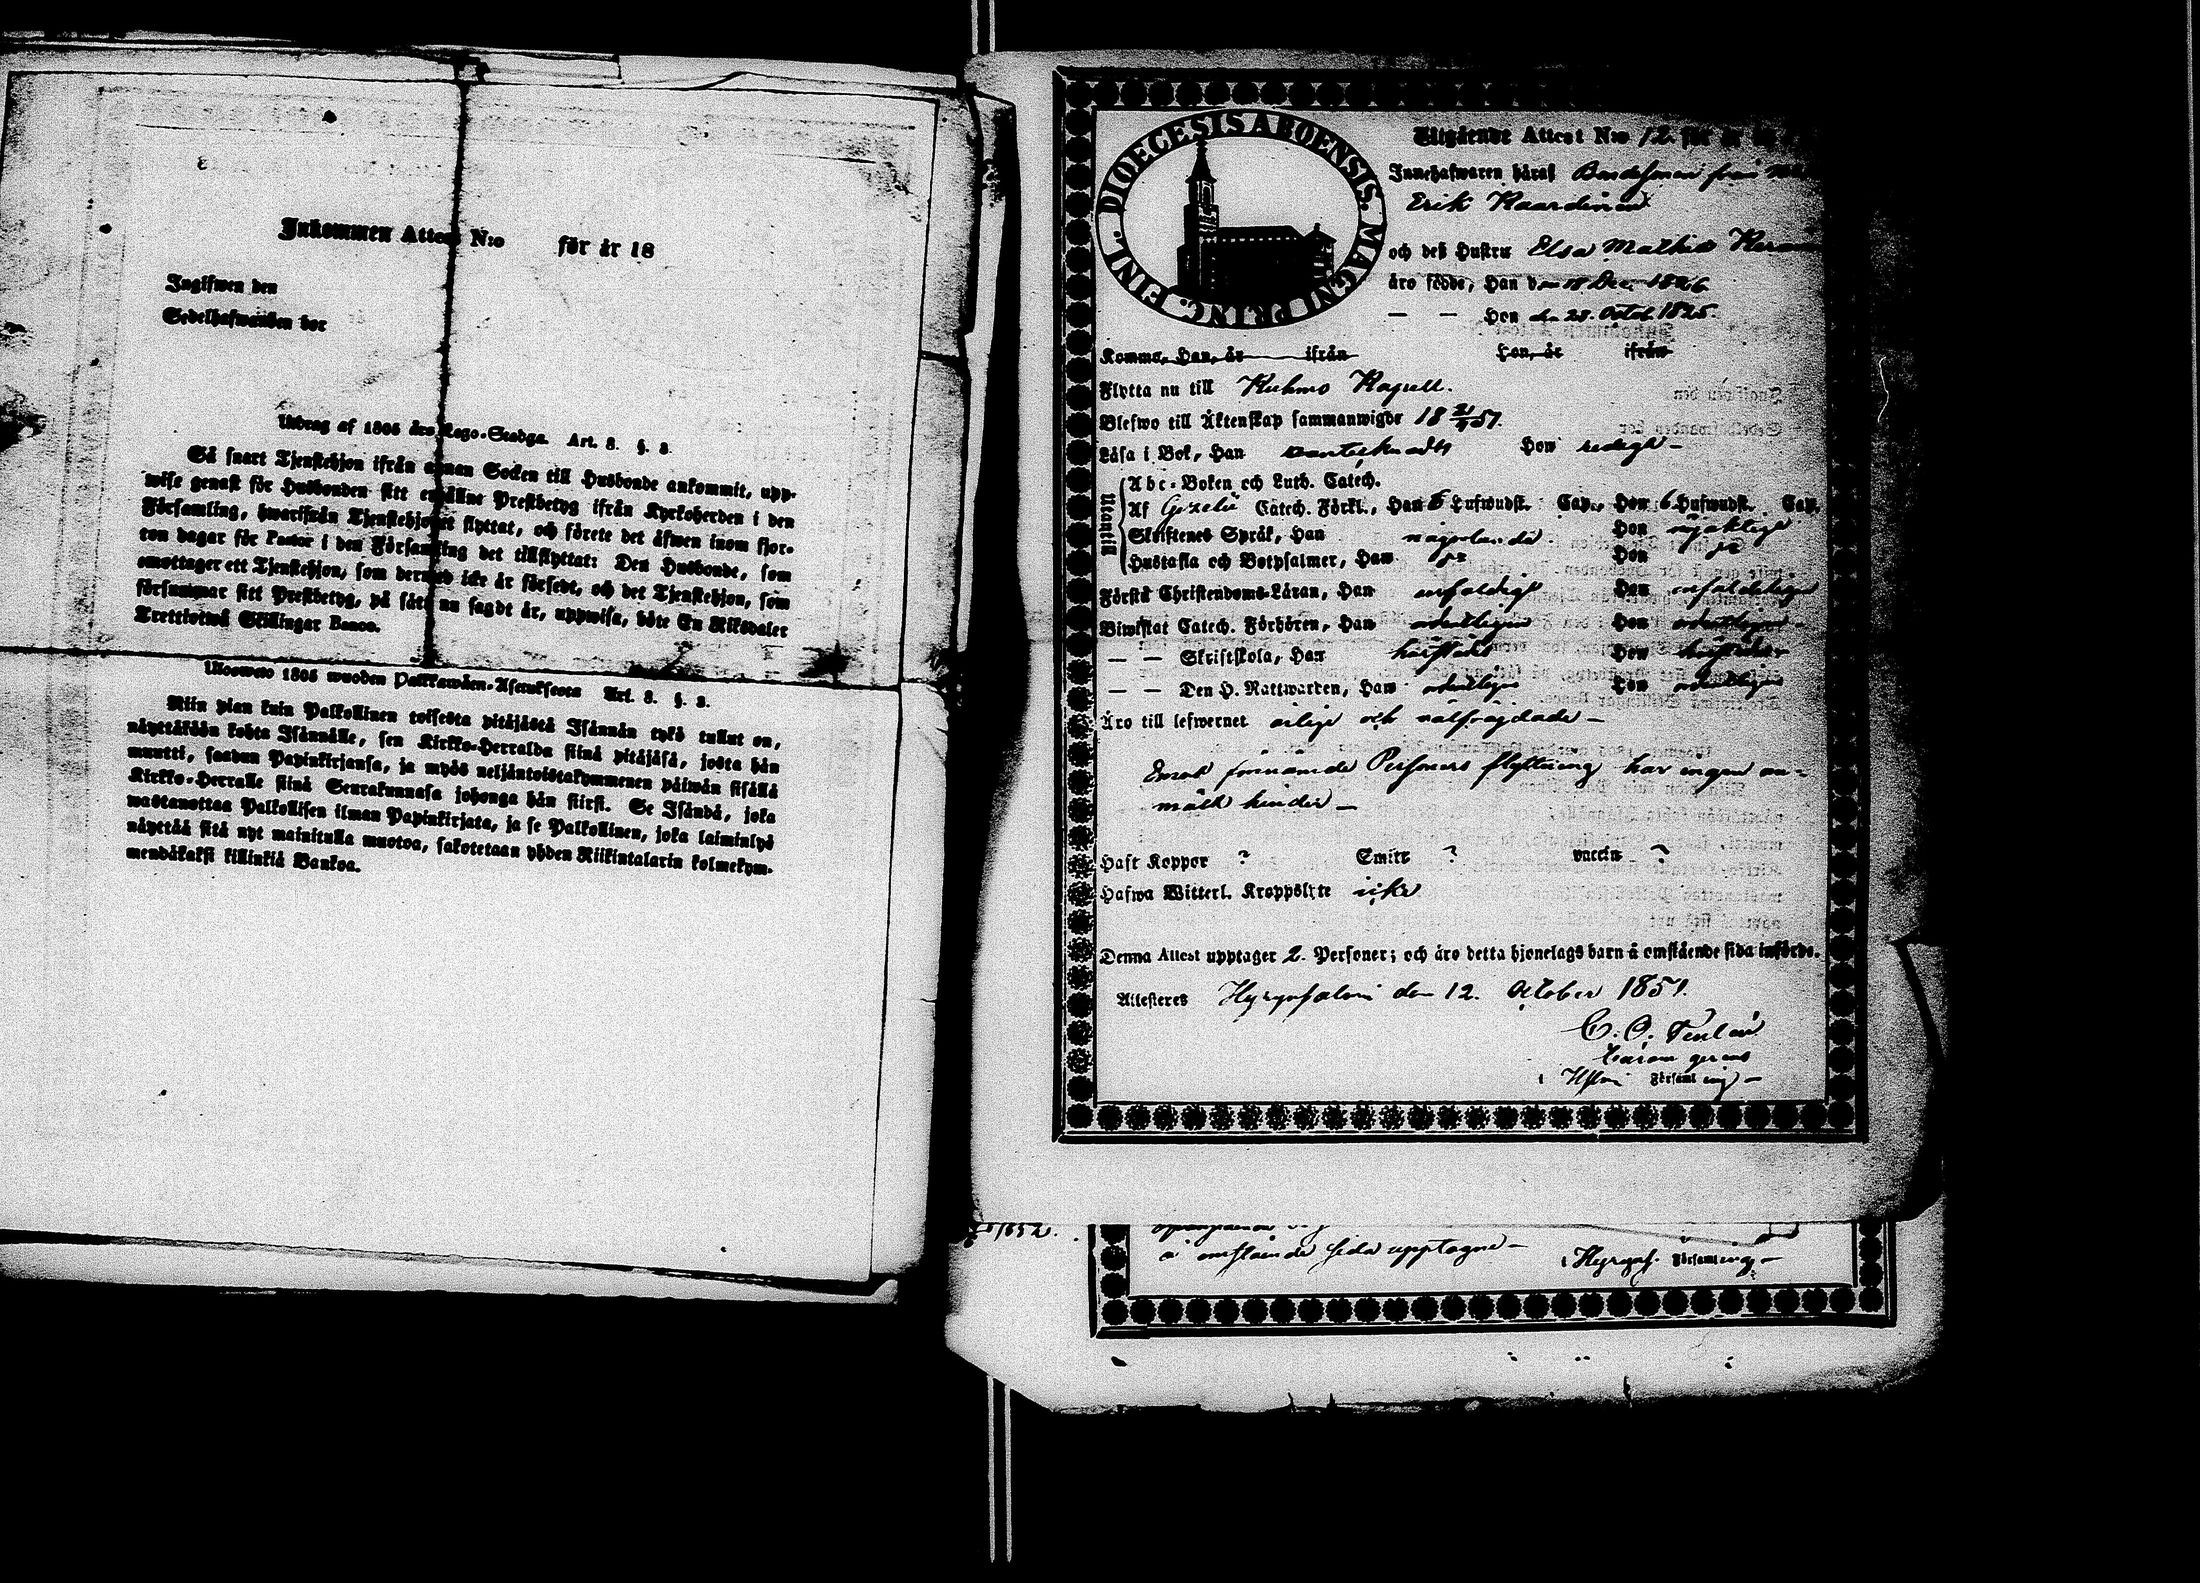 Inkommen Attest N:o för år 18
Ingifwen den
Sedelhafwanden bor
Utdrag af 1805 års Lego-Stadga. Art. 3. §. 3.
Så snart Tjenstehjon ifrån annan Socken till Husbonde ankommit, upp-
wise genast för Husbonden sitt erhållne Prestbetyg ifrån Kyrkoherden i den
Församling, hwarifrån Tjenstehjonet flyttat, och förete det äfwen inom fjor-
ton dagar för Pastor i den Församling det tillflyttat: Den Husbonde, som
emottager ett Tjenstehjon, som dermed icke är försedt, och det Tjenstehjon, som
försummar sitt Prestbetyg, på sätt nu sagdt är, uppwisa, böte En Riksdaler
Trettiotwå Skillingar Banco.
Ulosweto 1805 wuoden Palkkawäen-Asetuksesta Art. 3. §. 3.
Niin pian kuin Palkollinen toisesta pitäjästä Isännän tykö tullut on,
näyttäköön kohta Isännälle, sen Kirkko-Herralda siinä pitäjäsä, josta hän
muutti, saadun Papinkirjansa, ja myös neljäntoistakymmenen päiwän sisällä
Kirkko-Herralle siinä Seurakunnasa johonga hän siirsi. Se Isändä, joka
wastanottaa Palkollisen ilman Papinkirjata, ja se Palkollinen, joka laiminlyö
näyttää sitä nyt mainitulla muotoa, sakotetaan yhden Riikintalarin kolmekym-
mendäkaksi killinkiä Bankoa.
FINL. DIOECESIS ABOENSIS. MAGNI PRINC.
Utgående Attest N:o 12. för år
Innehafwaren häraf Bondesonen från
Erik Kaardinen
och deß Hustru Elsa Mathild.
äro födde, Han den 18 Dec. 1826
— — Hon den 28. Octob. 1825.
Komma, Han, år ifrån Hon, år ifrån
Flytta nu till Kuhmo Kapell.
Blefwo till Äktenskap sammanwigde 18 51.
Läsa i Bok, Han Hon redigt —
Utantill
Abc-Boken och Luth. Catech.
Af Gezelii Catech. Förkl., Han 6 Hufwudst. Cap., Hon 6 Hufwudst. Cap.
Skriftens Språk, Han någorlunda Hon nöjaktigt
Hustafla och Botpsalmer, Han Hon
Förstå Christendoms-Läran, Han enfaldigt Hon enfaldeligen
Biwistat Catech. Förhören, Han ordentligen Hon ordentligen —
— — Skriftskola, Han härstädes Hon härstädes
— — Den H. Nattwarden, Han ordentligen Hon ordentligen
Äro till lefwernet ärlige och välfrägdade —
Emot förnämde Personers flyttning har ingen an-
mält hinder —
Haft Koppor ? Smitt ? vaccin ?
Hafwa Witterl. Kroppslyte icke
Denna Attest upptager 2. Personer; och äro detta hjonelags barn å omstående sida införde.
Attesteras Hyrynsalmi den 12. October 1851.
C. O.
Curam gerens
i Hslmi Församling —
1852.
å omstående sida upptagne —
i Hyryns. Församling —